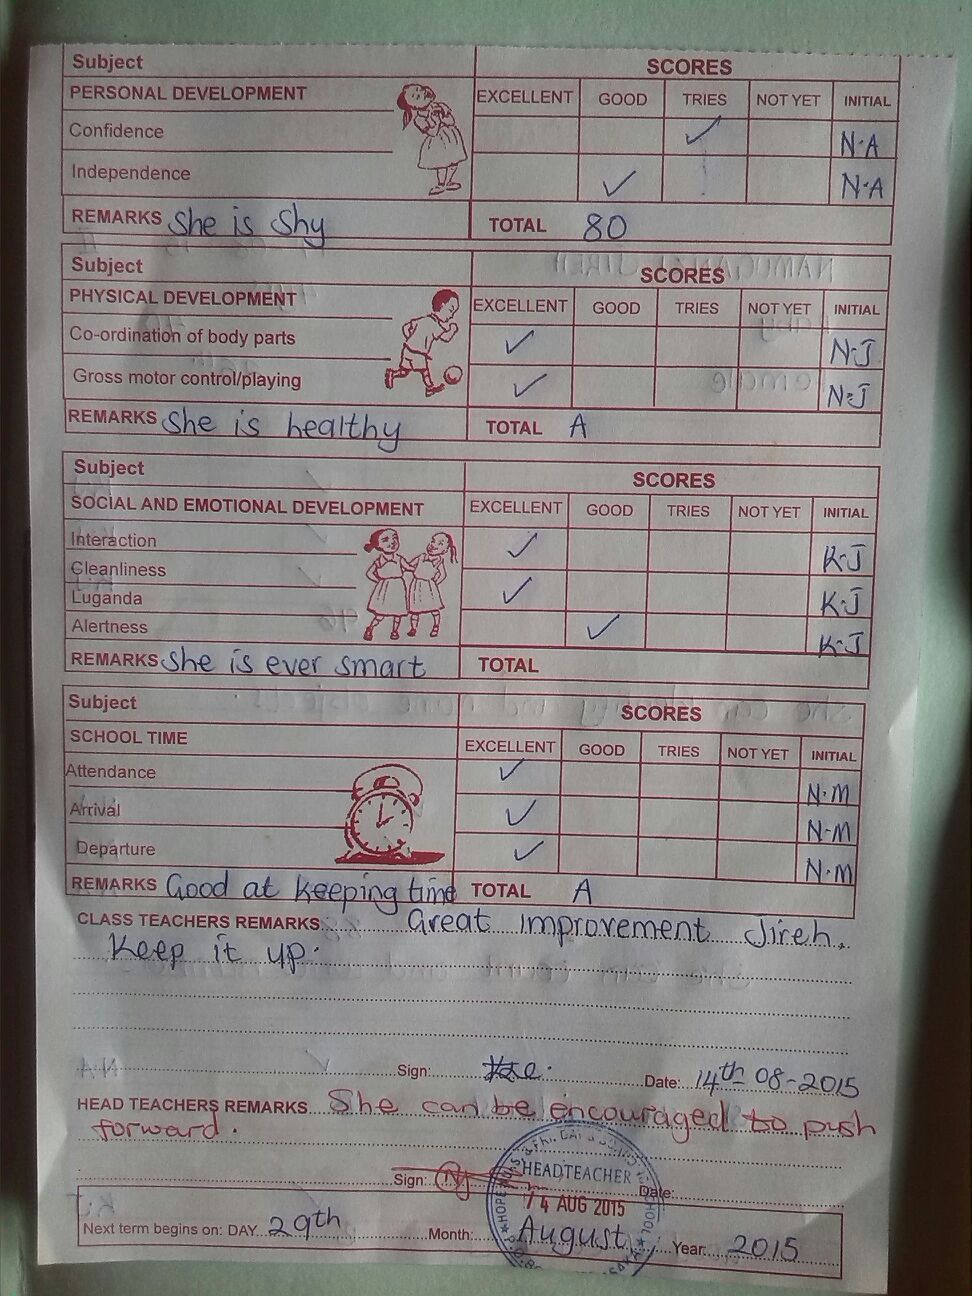 Subject SCORES
PERSONAL DEVELOPMENT EXCELLENT GOOD TRIES NOT YET INITIAL
Confidence ✓ N·A
Independence ✓ N·A
REMARKS She is Shy TOTAL 80
Subject SCORES
PHYSICAL DEVELOPMENT EXCELLENT GOOD TRIES NOT YET INITIAL
Co-ordination of body parts ✓ N·J
Gross motor control/playing ✓ N·J
REMARKS She is healthy TOTAL A
Subject SCORES
SOCIAL AND EMOTIONAL DEVELOPMENT EXCELLENT GOOD TRIES NOT YET INITIAL
Interaction ✓ K·J
Cleanliness
Luganda ✓ K·J
Alertness ✓ K·J
REMARKS She is ever smart TOTAL
Subject SCORES
SCHOOL TIME EXCELLENT GOOD TRIES NOT YET INITIAL
Attendance ✓ N·M
Arrival ✓ N·M
Departure ✓ N·M
REMARKS Good at keeping time TOTAL A
CLASS TEACHERS REMARKS Great improvement Jireh.
Keep it up.
Sign: Date: 14th-08-2015
HEAD TEACHERS REMARKS She can be encouraged to push
forward.
HEADTEACHER
Sign: Date:
14 AUG 2015
Next term begins on: DAY 29th Month: August Year 2015